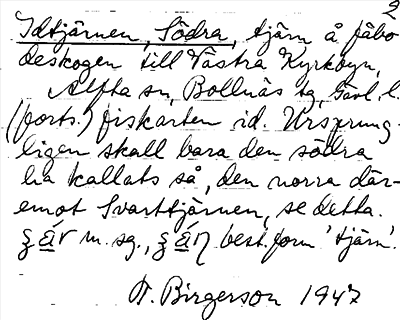 2
Idtjärnen, Södra, tjärn å fäbo-
deskogen till Västra Kyrkbyn,
Alfta sn, Bollnäs tg, Gävl. l.
(forts.) fiskarten id. Ursprung-
ligen skall bara den södra
ha kallats så, den norra där-
emot Svarttjärnen, se detta.
m. sg., best. form 'tjärn'.
Birgerson 1947